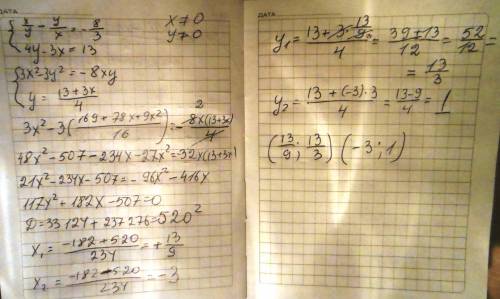 ДАТА
{ x/y - y/x = - 8/3     x ≠ 0
{ 4y - 3x = 13     y ≠ 0
{ 3x² - 3y² = -8xy
{ y = (13+3x)/4
3x² - 3((169 + 78x + 9x²)/16) = - 8x(13+3x)/4
2
48x² - 507 - 234x - 27x² = -32x(13+3x)
21x² - 234x - 507 = -96x² - 416x
117x² + 182x - 507 = 0
D = 33124 + 237276 = 520²
x₁ = (-182+520)/234 = + 13/9
x₂ = (-182-520)/234 = -3
ДАТА
y₁ = (13 + 3·13/9)/4 = (39+13)/12 = 52/12 =
= 13/3
y₂ = (13 + (-3)·3)/4 = (13-9)/4 = 1
(13/9; 13/3) (-3; 1)